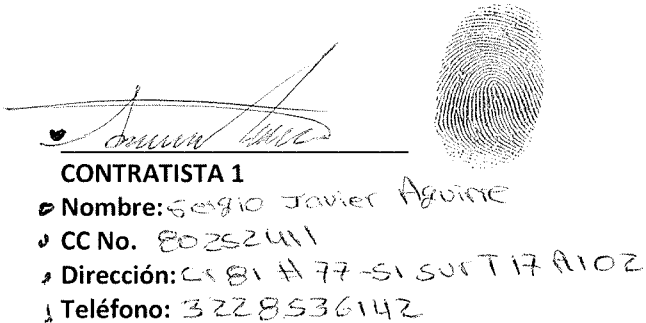 CONTRATISTA 1
Nombre: Sergio Javier Aguirre
CC No. 80252411
Dirección: CL 81 H 77-51 SUR T 17 A102
Teléfono: 3228536142